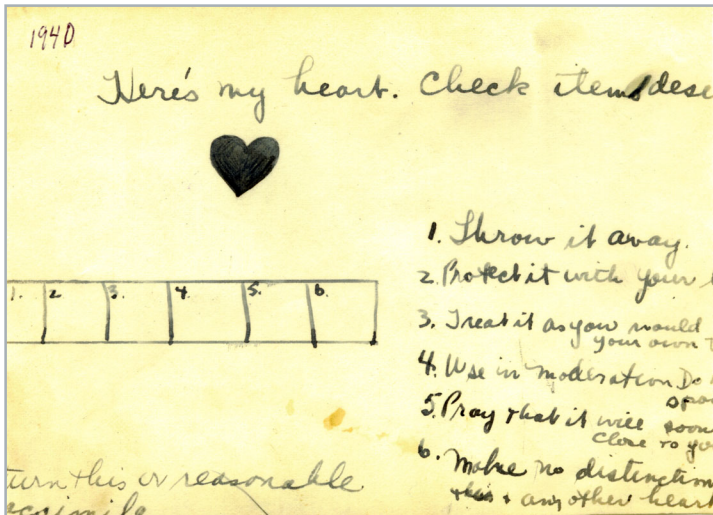 1940
Here's my heart. Check items dese
1. Throw it away.
2. Protect it with your
3. Treat it as you would
your own
4. Use in moderation Do
5. Pray that it will soon
close to yo
6. Make no distinction
this + any other heart
1. 2 3. 4. 5. 6.
turn this or reasonable